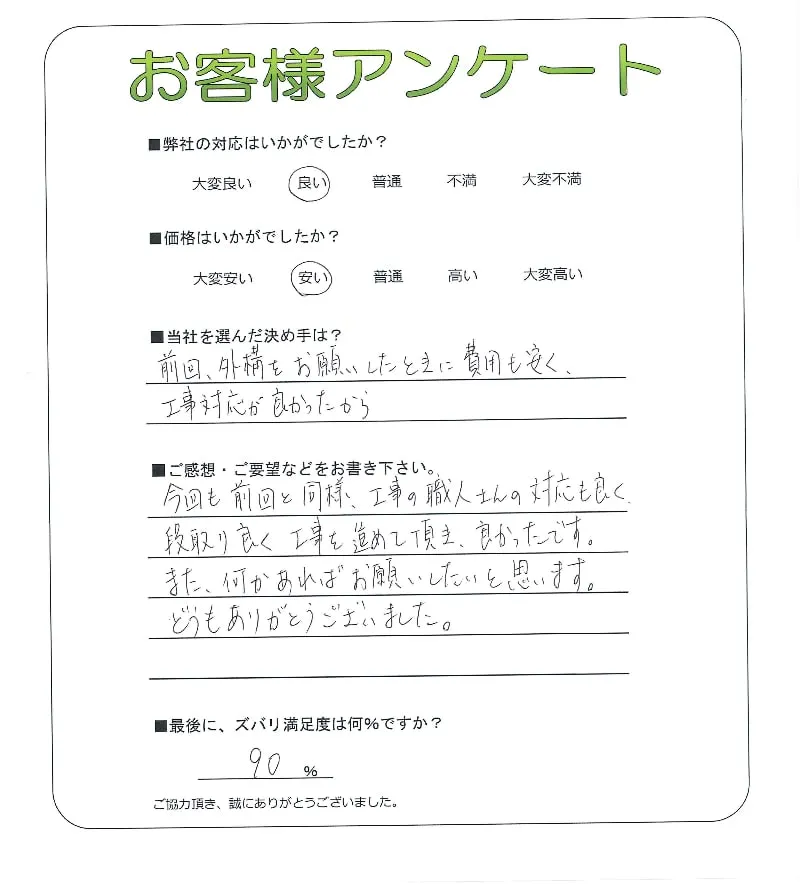 お客様アンケート
■弊社の対応はいかがでしたか？
大変良い 良い 普通 不満 大変不満
■価格はいかがでしたか？
大変安い 安い 普通 高い 大変高い
■当社を選んだ決め手は？
前回、外構をお願いしたときに費用も安く、
工事対応が良かったから
■ご感想・ご要望などをお書き下さい。
今回も前回と同様、工事の職人さんの対応も良く、
段取り良く工事を進めて頂き、良かったです。
また、何かあればお願いしたいと思います。
どうもありがとうございました。
■最後に、ズバリ満足度は何%ですか？
90 %
ご協力頂き、誠にありがとうございました。